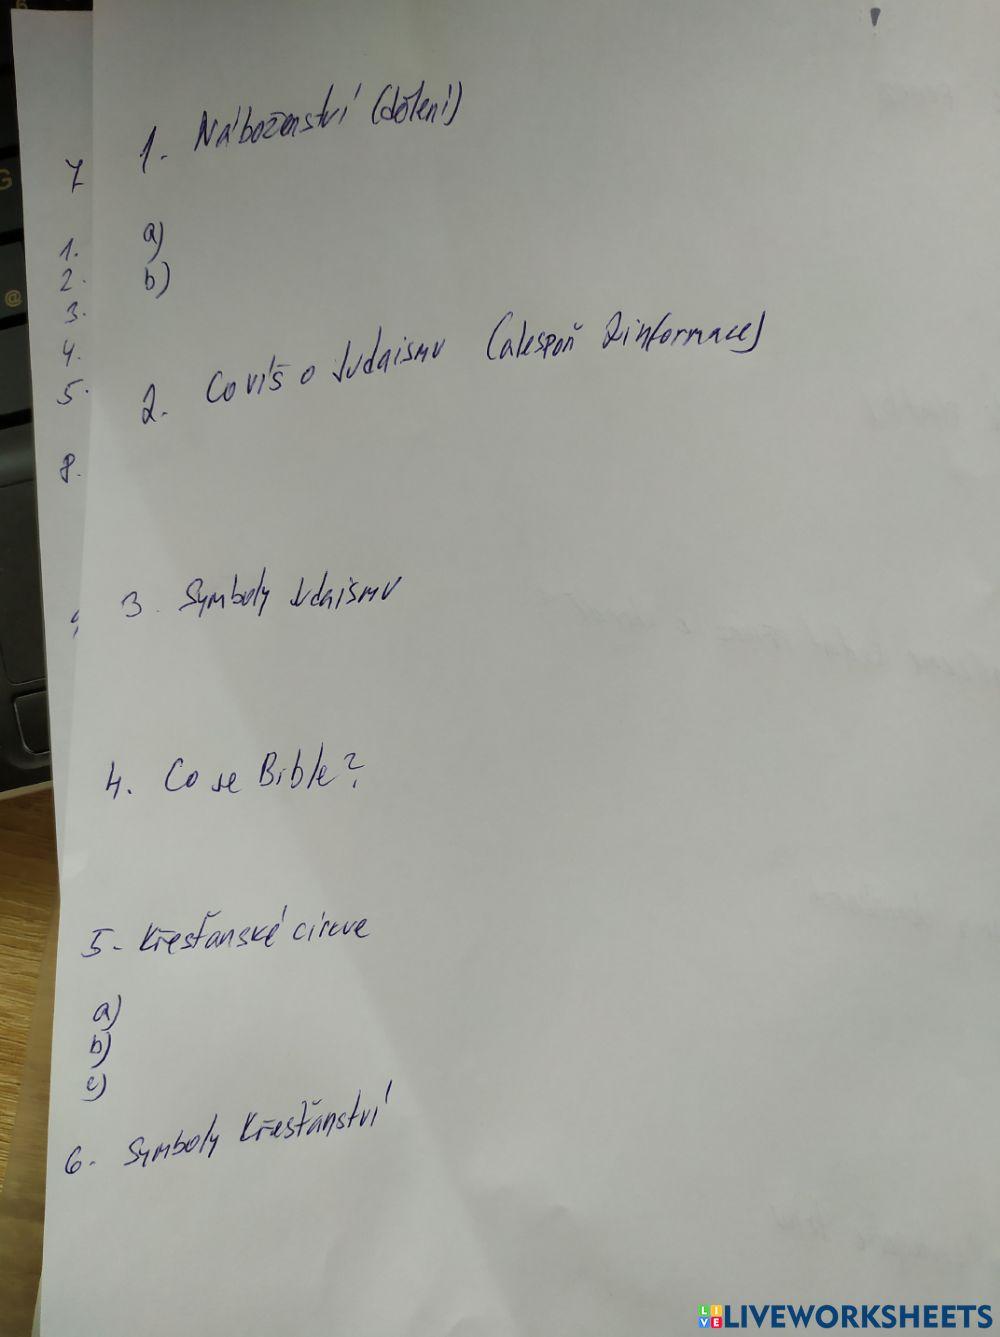 1. Náboženství (dělení)
a)
b)
2. Co víš o Judaismu (alespoň 2 informace)
3. Symboly Judaismu
4. Co je Bible?
5. Křesťanské církve
a)
b)
c)
6. Symboly Křesťanství
7
1.
2.
3.
4.
5.
8.
G
@
LIVEWORKSHEETS